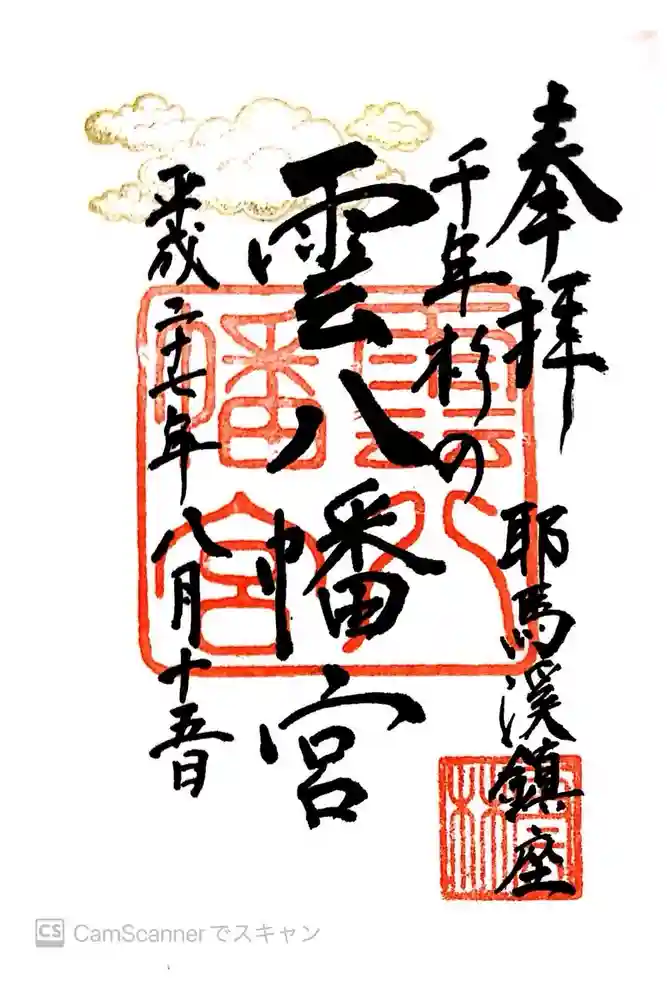 奉拝
耶馬溪鎮座
千年杉の
雲八幡宮
平成二十七年八月十五日
雲八幡宮
CS CamScannerでスキャン